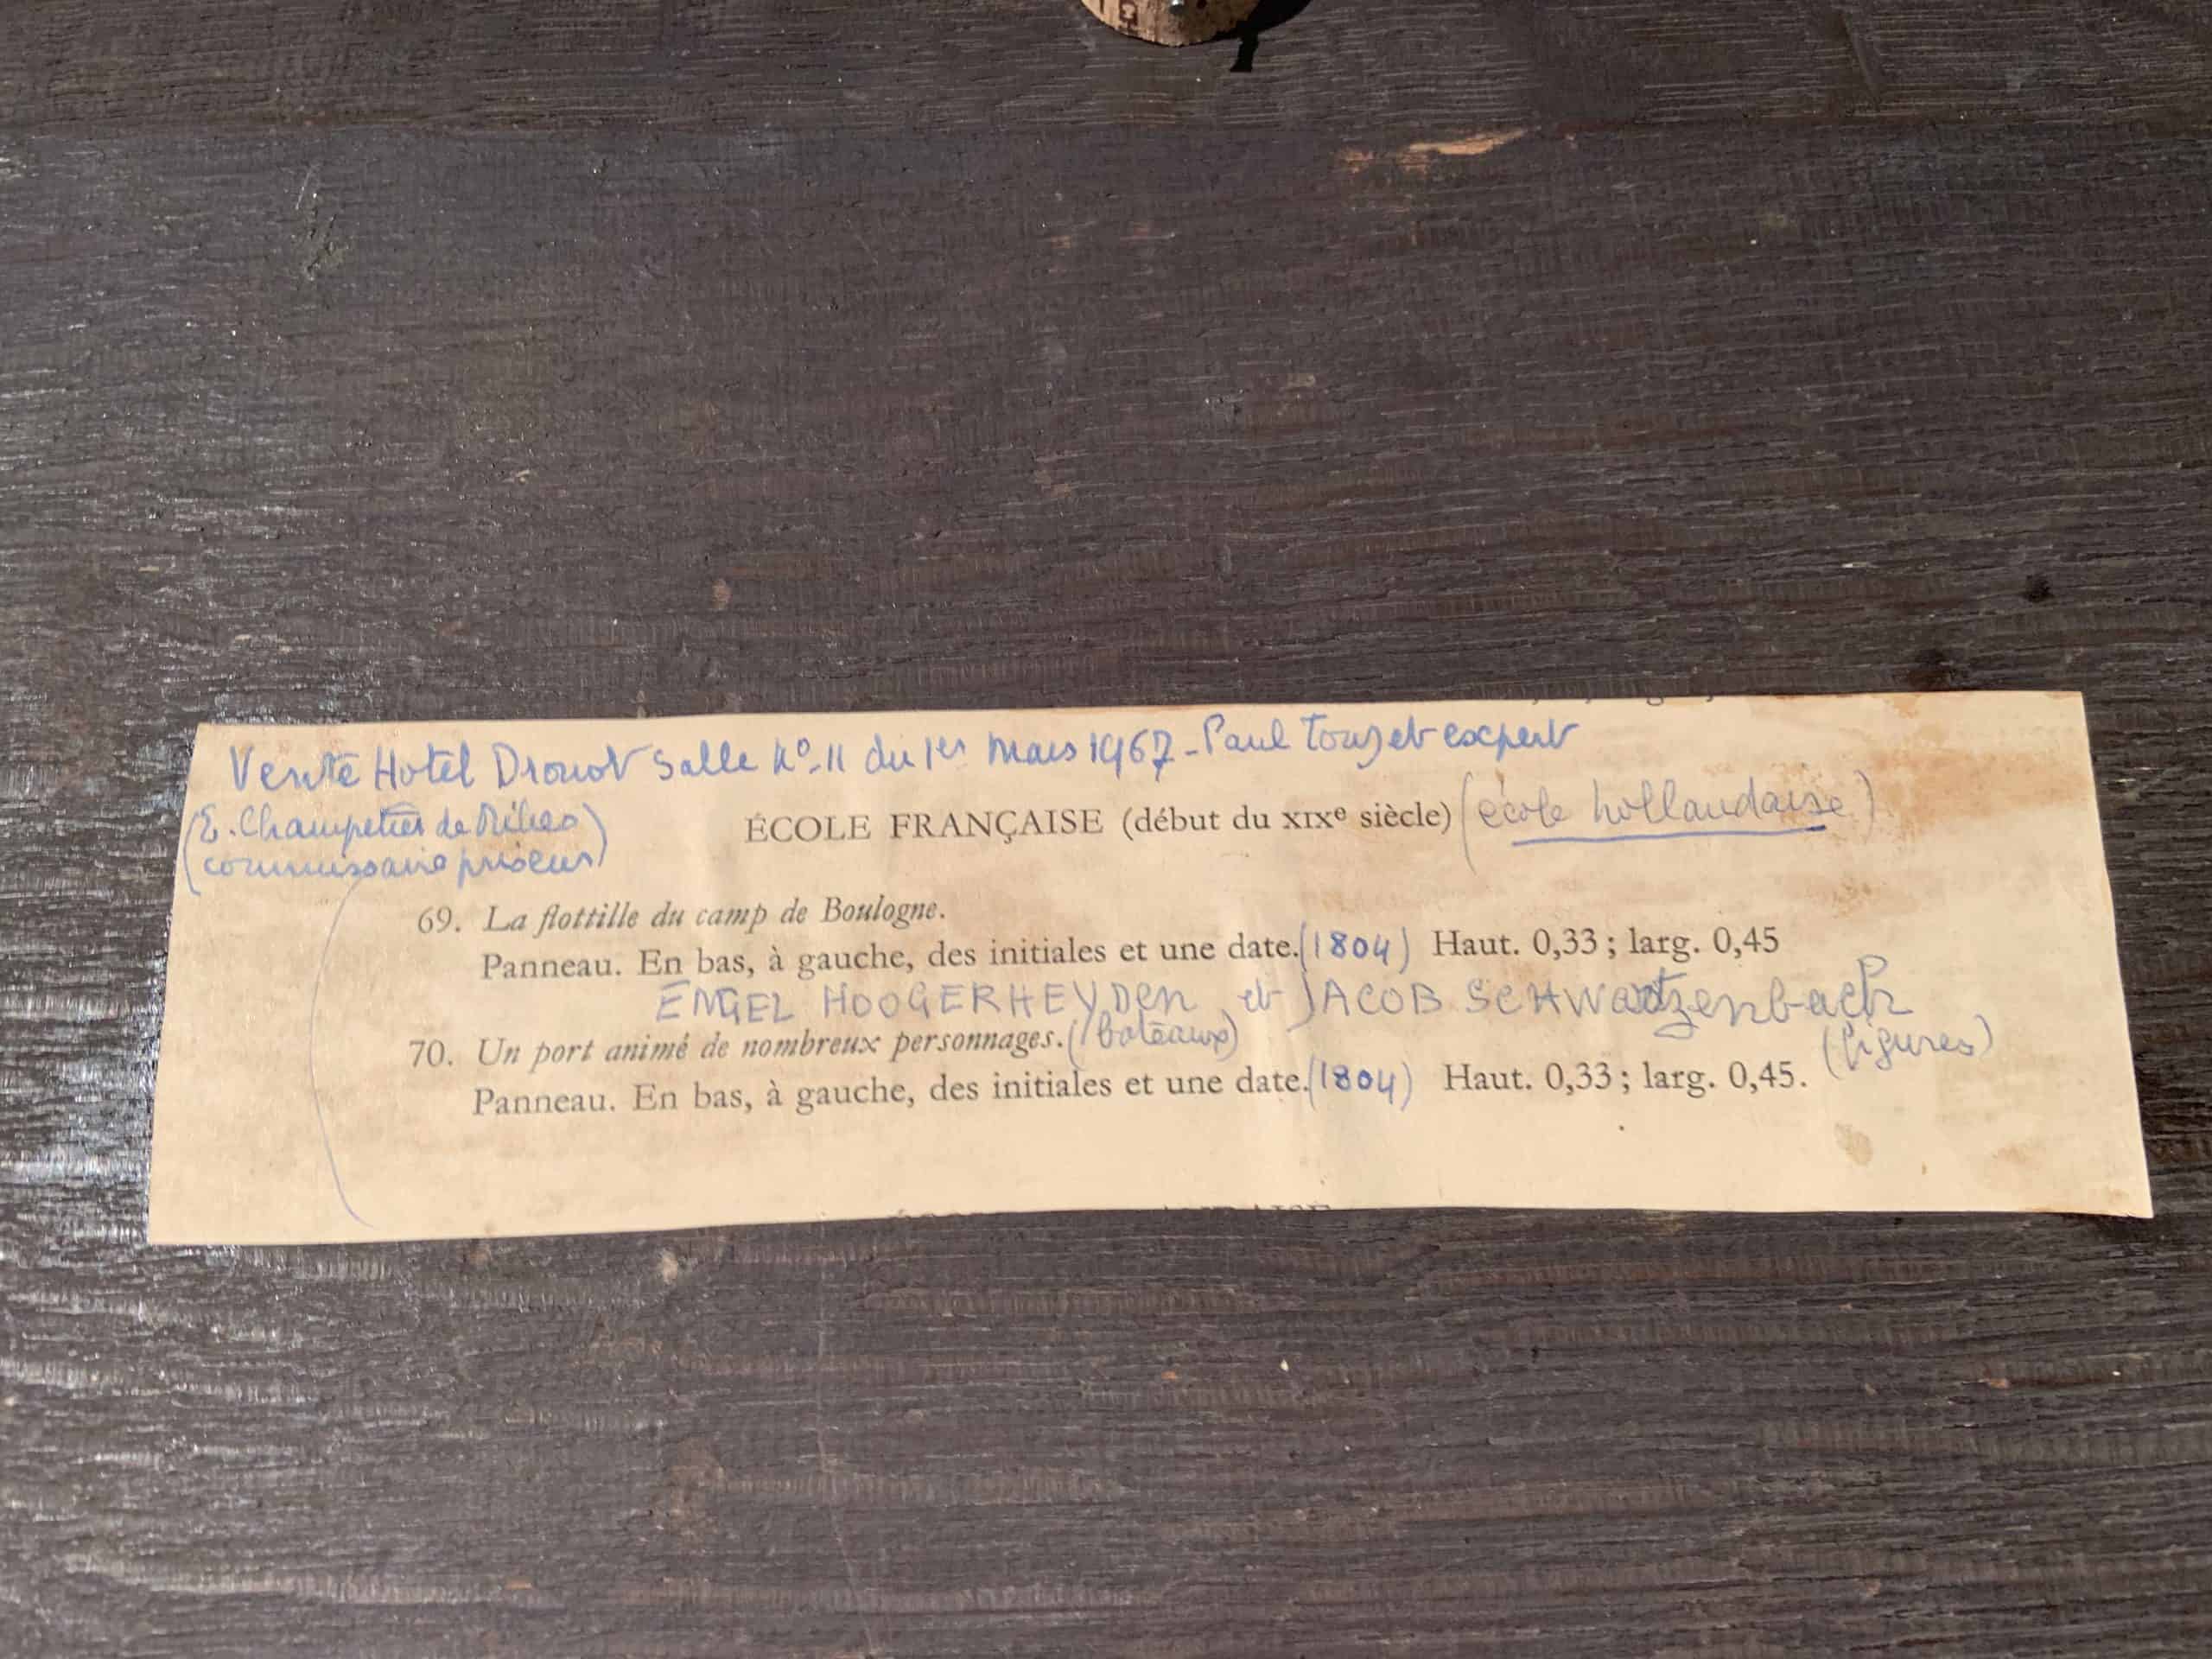 Vente Hotel Drouot Salle No-11 du 1er mars 1967 - Paul Touzet expert
(E. Champetier de Ribes
commissaire priseur)
ÉCOLE FRANÇAISE (début du XIXe siècle) (école hollandaise)
69. La flottille du camp de Boulogne.
Panneau. En bas, à gauche, des initiales et une date. (1804) Haut. 0,33 ; larg. 0,45
ENGEL HOOGERHEYDEN et JACOB SCHWartzenbach
70. Un port animé de nombreux personnages. (bateaux) (figures)
Panneau. En bas, à gauche, des initiales et une date. (1804) Haut. 0,33 ; larg. 0,45.